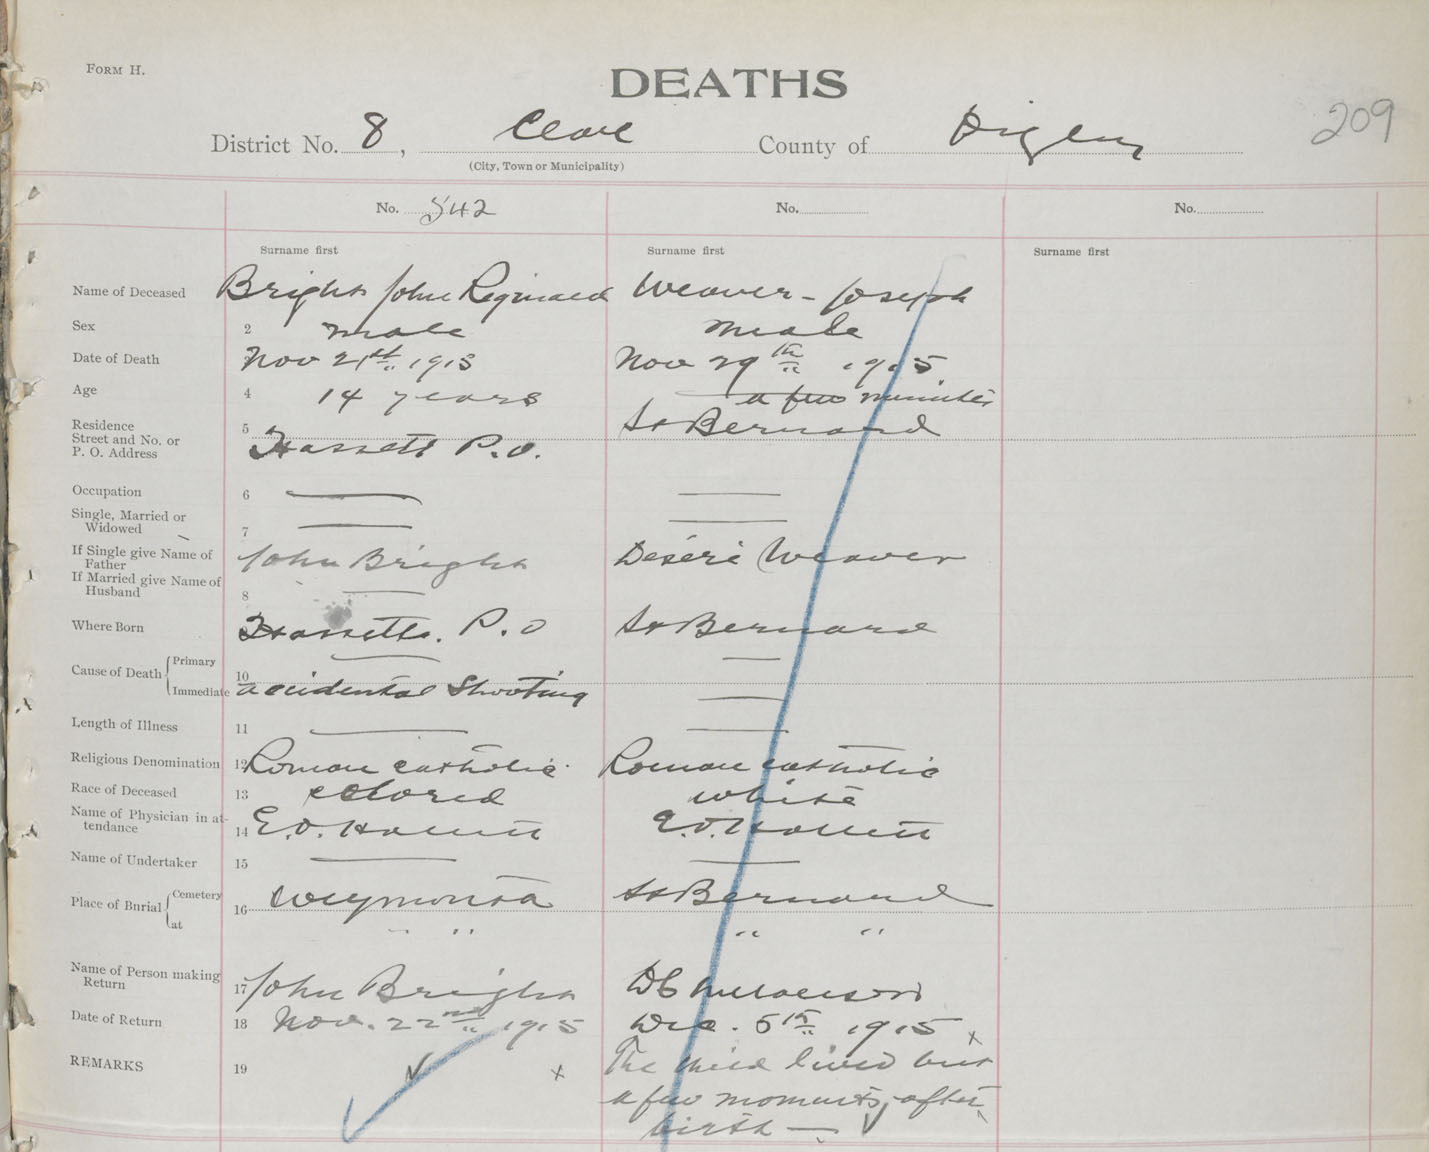 FORM H.
DEATHS
209
District No. 8, Clare County of Digby
(City, Town or Municipality)
No. 542 No. No.
Surname first Surname first Surname first
Name of Deceased Bright John Reginald Weaver - Joseph
Sex 2 male male
Date of Death Nov 21st 1915 Nov 29th 1915
Age 4 14 years a few minutes
Residence
Street and No. or
P. O. Address 5 Hassett P.O. St Bernard
Occupation 6
Single, Married or
Widowed 7
If Single give Name of
Father John Bright Deséré Weaver
If Married give Name of
Husband 8
Where Born Hassetts. P.O St Bernard
Cause of Death Primary
Immediate 10 accidental Shooting
Length of Illness 11
Religious Denomination 12 Roman catholic Roman catholic
Race of Deceased 13 colored white
Name of Physician in at-
tendance 14 E.O. Hallett E.O. Hallett
Name of Undertaker 15
Place of Burial Cemetery 16 Weymouth St Bernard
at " " " "
Name of Person making
Return 17 John Bright
Date of Return 18 Nov. 22nd 1915 Dec. 5th 1915 x
REMARKS 19 x The child lived but
a few moments after
birth —